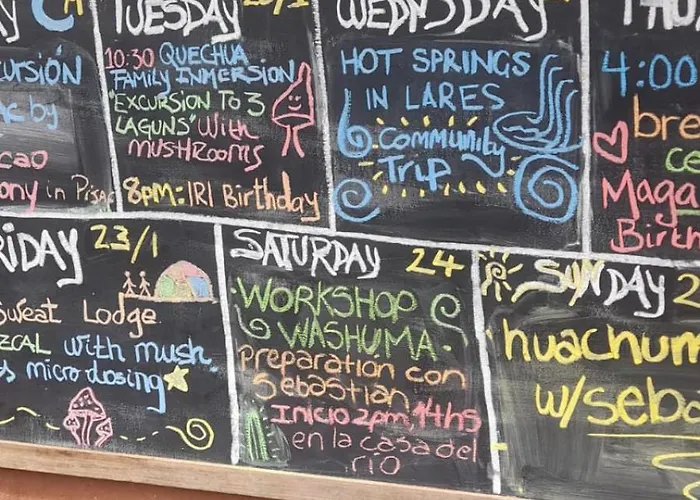 TUESDAY 20/1
10:30 QUECHUA
FAMILY INMERSION
"EXCURSION TO 3
LAGUNS" With
mushrooms
8PM: IRI Birthday
WEDNSDAY
HOT SPRINGS
IN LARES
Community
Trip
4:00
Birth
in Pisac
23/1
Sweat Lodge
with mush.
microdosing
SATURDAY 24
WORKSHOP
WASHUMA
preparation con
Sebastian
Inicio 2pm, 14hs
en la casa del
río
SUNDAY 2
huachum
w/seba